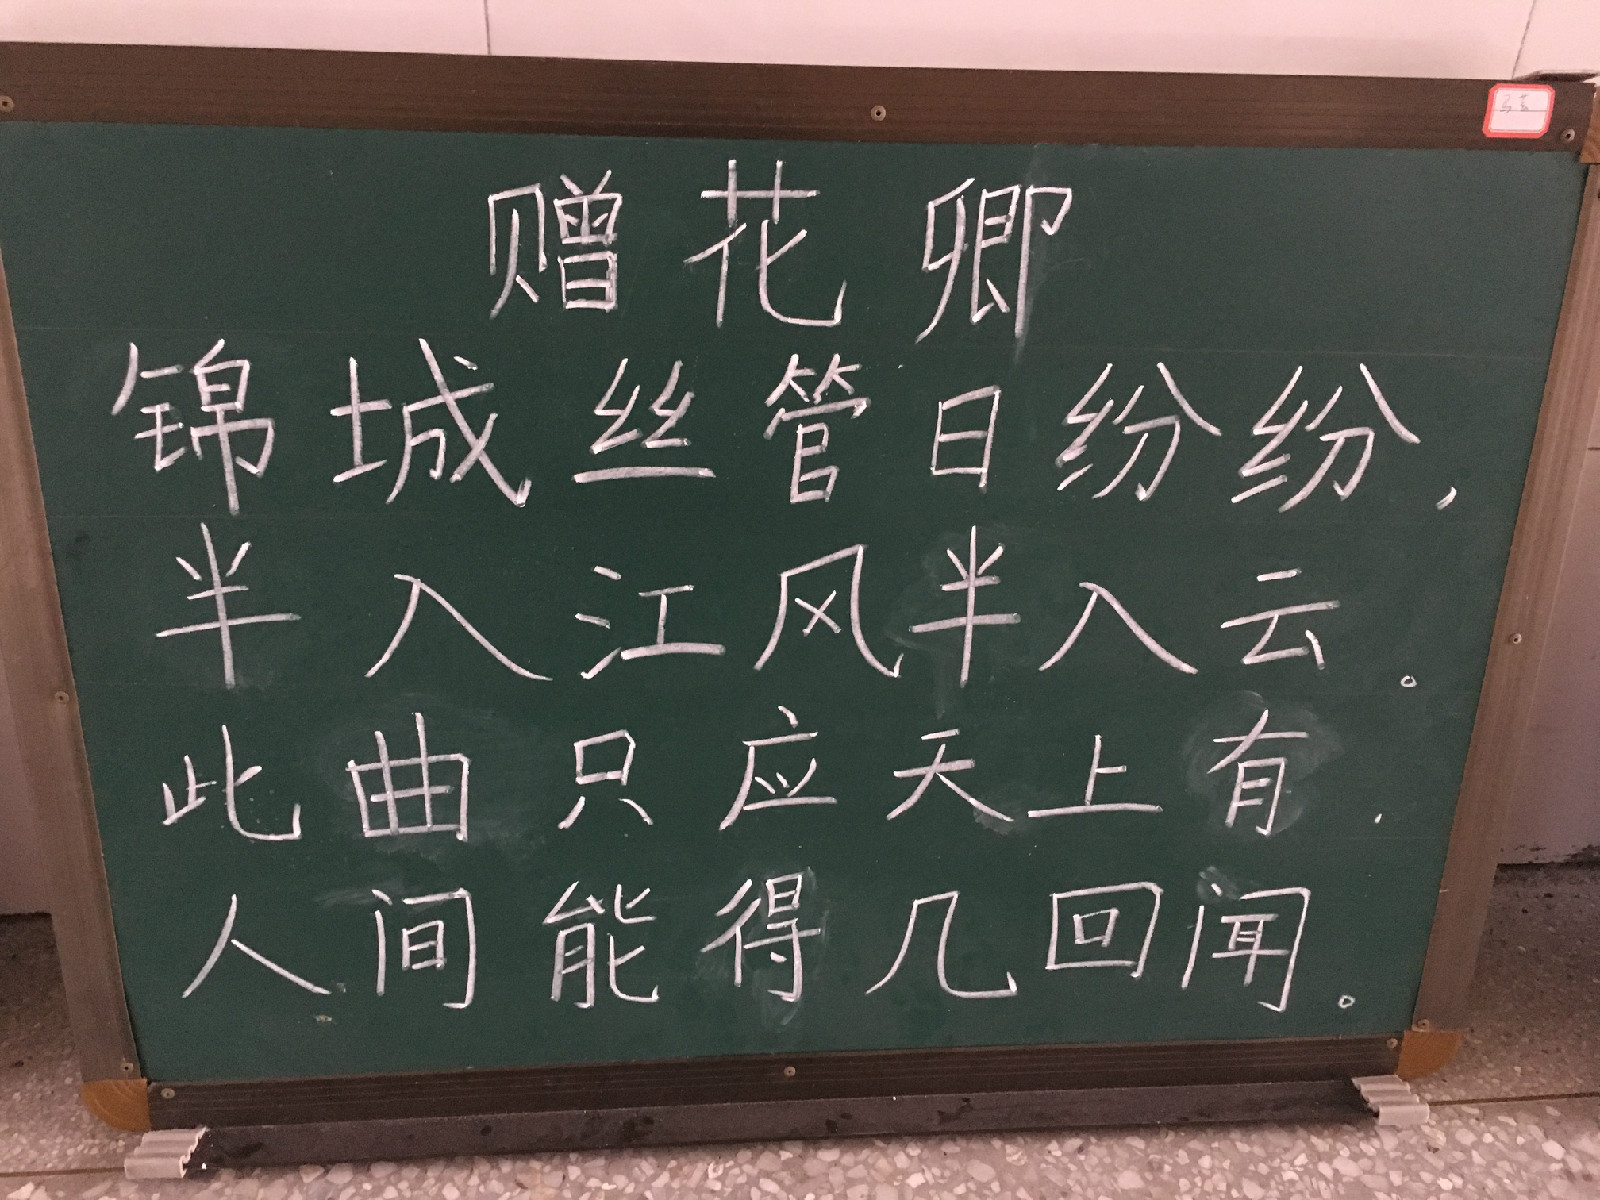 赠花卿
锦城丝管日纷纷，
半入江风半入云。
此曲只应天上有，
人间能得几回闻。